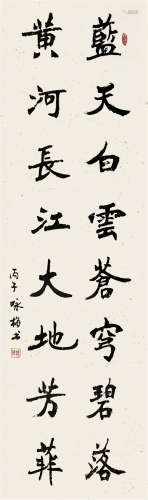 藍天白雲蒼穹碧落
黄河長江大地芳菲
丙午咏梅书